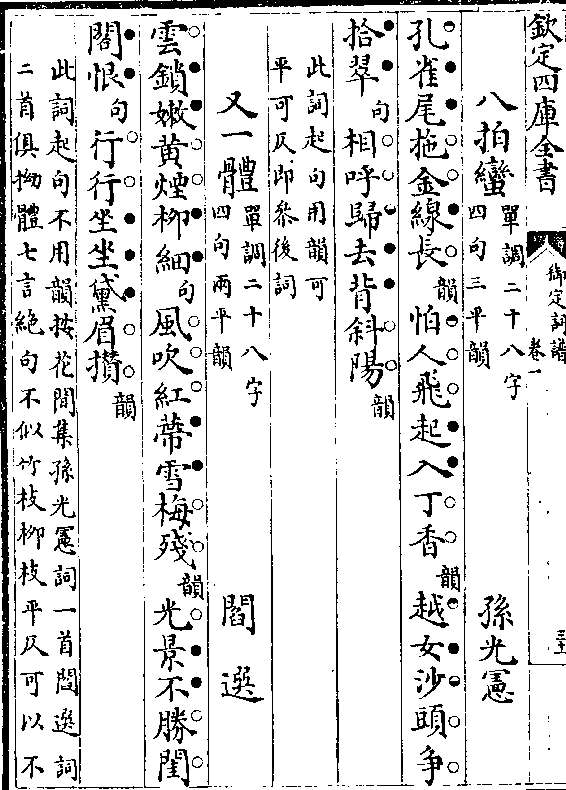 欽定四庫全書
御定詞譜
卷一
八拍蠻 單調二十八字 孫光憲
四句三平韻
孔雀尾拖金線長韻怕人飛起入丁香韻越女沙頭爭
拾翠句相呼歸去背斜陽韻
此詞起句用韻可
平可仄即叅後詞
又一體 單調二十八字 閻選
四句兩平韻
雲鎖嫩黄煙柳細句風吹紅蔕雪梅殘韻光景不勝閨
閤恨句行行坐坐黛眉攅韻
此詞起句不用韻按花間集孫光憲詞一首閻選詞
二首俱拗體七言絶句不似竹枝柳枝平仄可以不